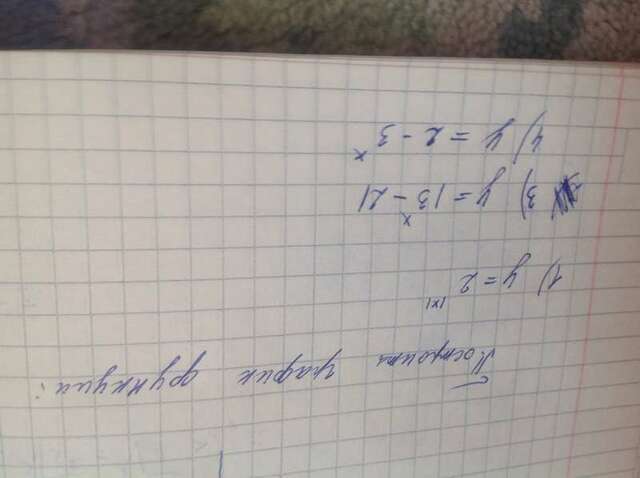 Построить график функции:
1) y = 2^|x|
3) y = |3^x - 2|
4) y = 2 - 3^x